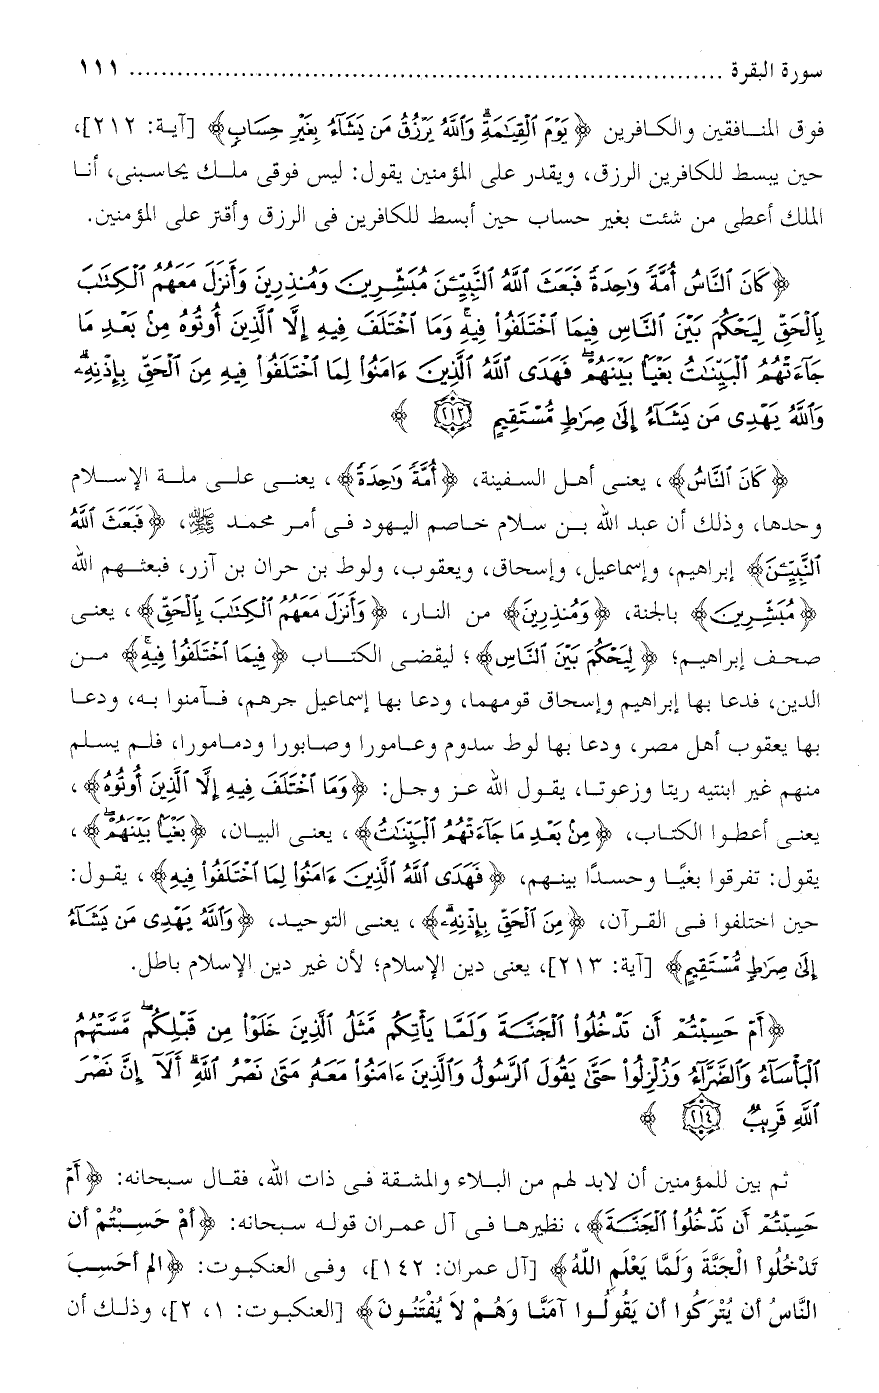 سورة البقرة ........................................................................... ١١١
فوق المنافقين والكافرين ﴿يَوْمَ ٱلْقِيَٰمَةِ ۗ وَٱللَّهُ يَرْزُقُ مَن يَشَآءُ بِغَيْرِ حِسَابٍ﴾ [آية: ٢١٢]،
حين يبسط للكافرين الرزق، ويقدر على المؤمنين يقول: ليس فوقى ملك يحاسبنى، أنا
الملك أعطى من شئت بغير حساب حين أبسط للكافرين فى الرزق وأقتر على المؤمنين.
﴿كَانَ ٱلنَّاسُ أُمَّةً وَٰحِدَةً فَبَعَثَ ٱللَّهُ ٱلنَّبِيِّـۧنَ مُبَشِّرِينَ وَمُنذِرِينَ وَأَنزَلَ مَعَهُمُ ٱلْكِتَٰبَ
بِٱلْحَقِّ لِيَحْكُمَ بَيْنَ ٱلنَّاسِ فِيمَا ٱخْتَلَفُوا۟ فِيهِ ۚ وَمَا ٱخْتَلَفَ فِيهِ إِلَّا ٱلَّذِينَ أُوتُوهُ مِنۢ بَعْدِ مَا
جَآءَتْهُمُ ٱلْبَيِّنَٰتُ بَغْيًۢا بَيْنَهُمْ ۖ فَهَدَى ٱللَّهُ ٱلَّذِينَ ءَامَنُوا۟ لِمَا ٱخْتَلَفُوا۟ فِيهِ مِنَ ٱلْحَقِّ بِإِذْنِهِۦ ۗ
وَٱللَّهُ يَهْدِى مَن يَشَآءُ إِلَىٰ صِرَٰطٍ مُّسْتَقِيمٍ ٢١٣﴾
﴿كَانَ ٱلنَّاسُ﴾، يعنى أهل السفينة، ﴿أُمَّةً وَٰحِدَةً﴾، يعنى على ملة الإسلام
وحدها، وذلك أن عبد الله بن سلام خاصم اليهود فى أمر محمد ﷺ، ﴿فَبَعَثَ ٱللَّهُ
ٱلنَّبِيِّـۧنَ﴾ إبراهيم، وإسماعيل، وإسحاق، ويعقوب، ولوط بن حران بن آزر، فبعثهم الله
﴿مُبَشِّرِينَ﴾ بالجنة، ﴿وَمُنذِرِينَ﴾ من النار، ﴿وَأَنزَلَ مَعَهُمُ ٱلْكِتَٰبَ بِٱلْحَقِّ﴾، يعنى
صحف إبراهيم؛ ﴿لِيَحْكُمَ بَيْنَ ٱلنَّاسِ﴾؛ ليقضى الكتاب ﴿فِيمَا ٱخْتَلَفُوا۟ فِيهِ ۚ﴾ من
الدين، فدعا بها إبراهيم وإسحاق قومهما، ودعا بها إسماعيل جرهم، فآمنوا به، ودعا
بها يعقوب أهل مصر، ودعا بها لوط سدوم وعامورا وصابورا ودمامورا، فلم يسلم
منهم غير ابنتيه ريتا وزعوتا، يقول الله عز وجل: ﴿وَمَا ٱخْتَلَفَ فِيهِ إِلَّا ٱلَّذِينَ أُوتُوهُ﴾،
يعنى أعطوا الكتاب، ﴿مِنۢ بَعْدِ مَا جَآءَتْهُمُ ٱلْبَيِّنَٰتُ﴾، يعنى البيان، ﴿بَغْيًۢا بَيْنَهُمْ ۖ﴾،
يقول: تفرقوا بغيًا وحسدًا بينهم، ﴿فَهَدَى ٱللَّهُ ٱلَّذِينَ ءَامَنُوا۟ لِمَا ٱخْتَلَفُوا۟ فِيهِ﴾، يقول:
حين اختلفوا فى القرآن، ﴿مِنَ ٱلْحَقِّ بِإِذْنِهِۦ ۗ﴾، يعنى التوحيد، ﴿وَٱللَّهُ يَهْدِى مَن يَشَآءُ
إِلَىٰ صِرَٰطٍ مُّسْتَقِيمٍ﴾ [آية: ٢١٣]، يعنى دين الإسلام؛ لأن غير دين الإسلام باطل.
﴿أَمْ حَسِبْتُمْ أَن تَدْخُلُوا۟ ٱلْجَنَّةَ وَلَمَّا يَأْتِكُم مَّثَلُ ٱلَّذِينَ خَلَوْا۟ مِن قَبْلِكُم ۖ مَّسَّتْهُمُ
ٱلْبَأْسَآءُ وَٱلضَّرَّآءُ وَزُلْزِلُوا۟ حَتَّىٰ يَقُولَ ٱلرَّسُولُ وَٱلَّذِينَ ءَامَنُوا۟ مَعَهُۥ مَتَىٰ نَصْرُ ٱللَّهِ ۗ أَلَآ إِنَّ نَصْرَ
ٱللَّهِ قَرِيبٌ ٢١٤﴾
ثم بين للمؤمنين أن لابد لهم من البلاء والمشقة فى ذات الله، فقال سبحانه: ﴿أَمْ
حَسِبْتُمْ أَن تَدْخُلُوا۟ ٱلْجَنَّةَ﴾، نظيرها فى آل عمران قوله سبحانه: ﴿أَمْ حَسِبْتُمْ أَن
تَدْخُلُواْ الْجَنَّةَ وَلَمَّا يَعْلَمِ اللّهُ﴾ [آل عمران: ١٤٢]، وفى العنكبوت: ﴿الم أَحَسِبَ
النَّاسُ أَن يُتْرَكُوا أَن يَقُولُوا آمَنَّا وَهُمْ لاَ يُفْتَنُونَ﴾ [العنكبوت: ١، ٢]، وذلك أن